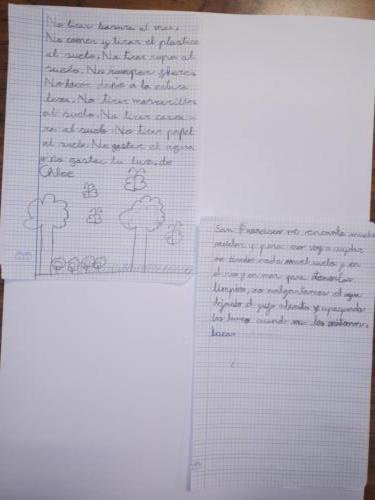 No tirar basura al mar.
No comer y tirar el plastico
al suelo. No tirar ropa al
suelo. No romper flores
No hacer daño a la natura
leza. No tirar mascarillas
al suelo. No tirar casca
ra al suelo. No tirar papel
al suelo. No gastar el agua
y no gastar la luz. de
Chloe
San Francisco me encanta
y para eso voy a cuidar
no tirando nada en el suelo y en
el rio y en mar para
limpios, no malgastamos el agua
dejando el grifo abierto y apagando
las luces cuando no las